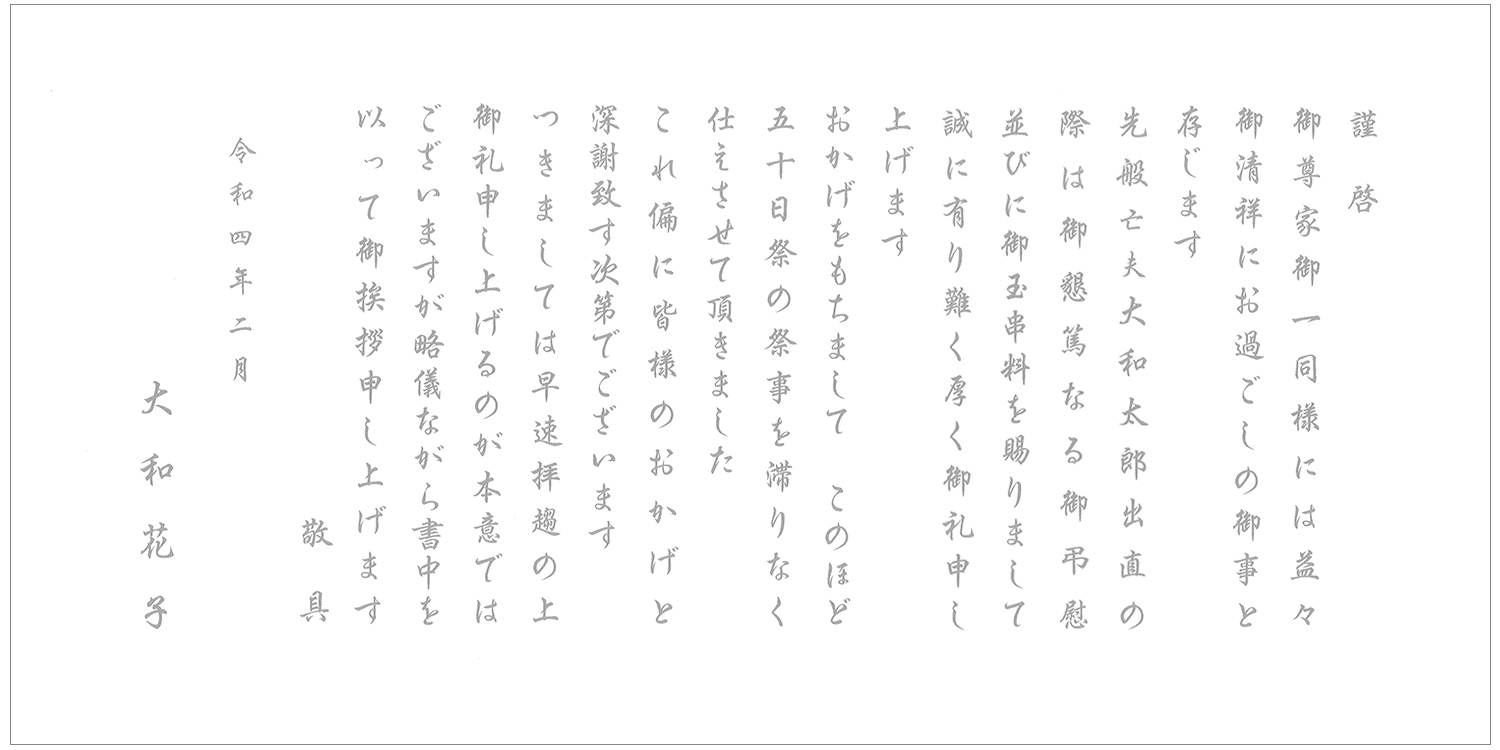 謹啓
御尊家御一同様には益々
御清祥にお過ごしの御事と
存じます
先般亡夫大和太郎出直の
際は御懇篤なる御弔慰
並びに御玉串料を賜りまして
誠に有り難く厚く御礼申し
上げます
おかげをもちまして　このほど
五十日祭の祭事を滞りなく
仕えさせて頂きました
これ偏に皆様のおかげと
深謝致す次第でございます
つきましては早速拝趨の上
御礼申し上げるのが本意では
ございますが略儀ながら書中を
以って御挨拶申し上げます
敬具
令和四年二月
大和花子